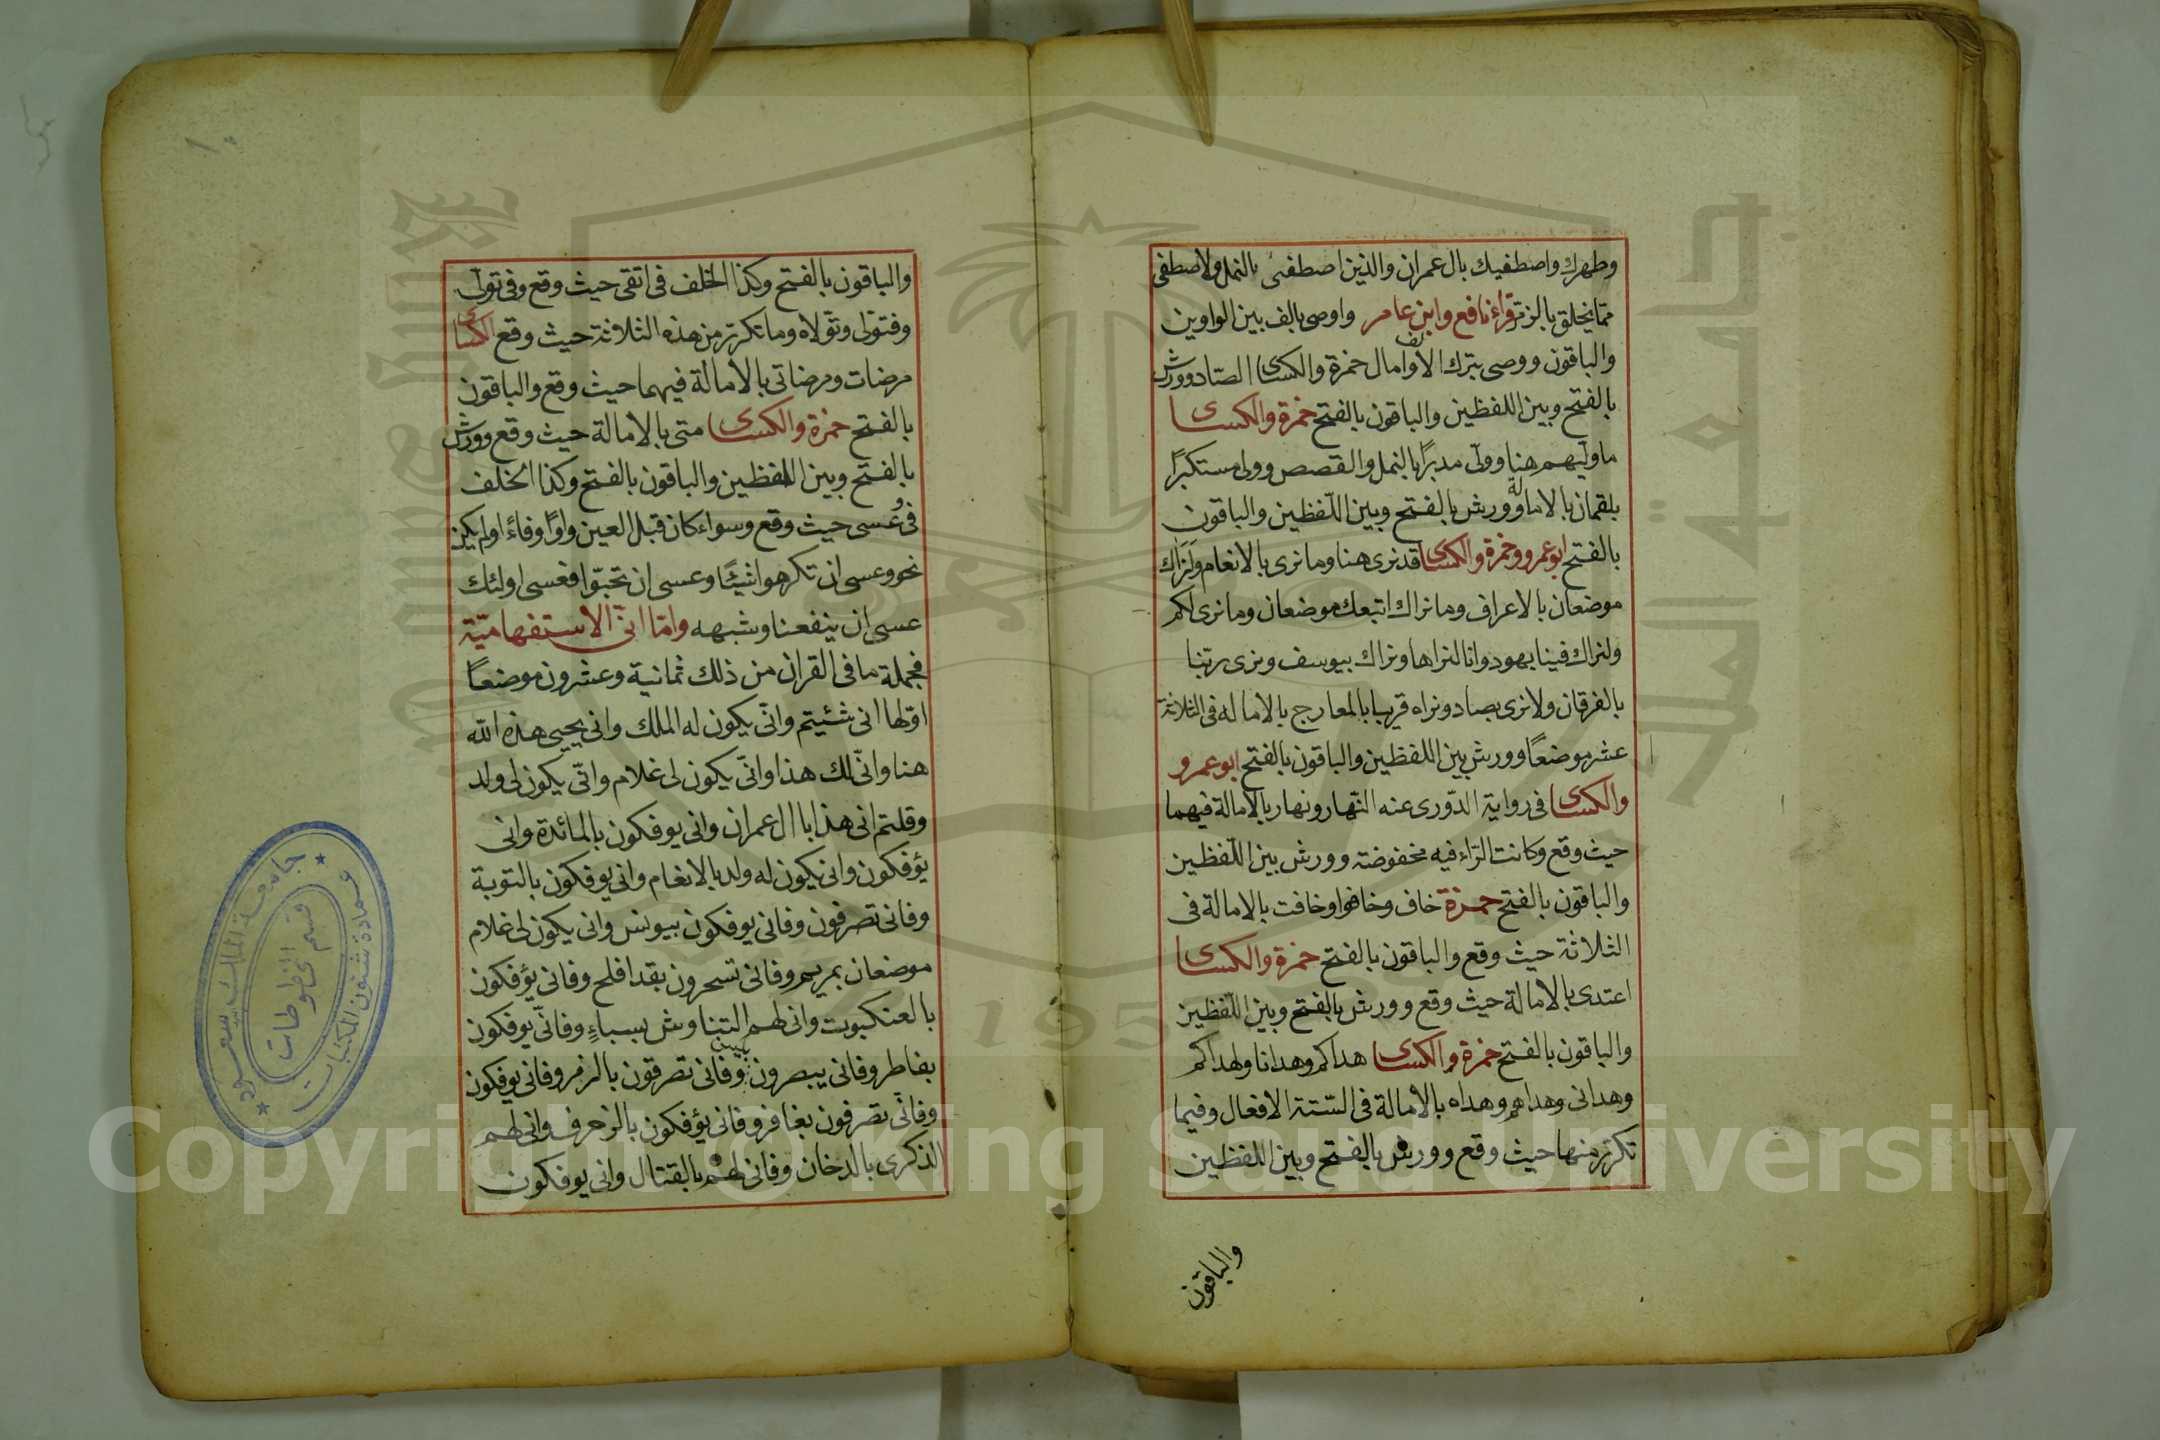 وطهرك واصطفيك بال عمران والذين اصطفى بالنمل ولاصطفى
مما يخلق بالزمر قراء نافع وابن عامر واوصى بالف بين الواوين
والباقون ووصى بترك الالف وامال حمزة والكسائى الصاد وورش
بالفتح وبين اللفظين والباقون بالفتح حمزة والكسائى
ما ولّيهم هنا وولّى مدبرًا بالنمل والقصص وولى مستكبرًا
بلقمان بالامالة وورش بالفتح وبين اللّفظين والباقون
بالفتح ابو عمرو وحمزة والكسائى قد نرى هنا وما نرى بالانعام ولنراك
موضعان بالاعراف وما نراك اتبعك موضعان وما نرى لكم
ولنراك فينا بهود وانا لنراها ونراك بيوسف ونرى ربّنا
بالفرقان ولا نرى بصاد ونراه قريبا بالمعارج بالاماله فى الثلاثة
عشر موضعًا وورش بين اللفظين والباقون بالفتح ابو عمرو
والكسائى فى رواية الدّورى عنه النّهار ونهار بالامالة فيهما
حيث وقع وكانت الرّاء فيه مخفوضة وورش بين اللّفظين
والباقون بالفتح حمزة خاف وخافوا وخافت بالامالة فى
الثلاثة حيث وقع والباقون بالفتح حمزة والكسائى
اعتدى بالامالة حيث وقع وورش بالفتح وبين اللّفظين
والباقون بالفتح حمزة والكسائى هداكم وهدانا ولهداكم
وهدانى وهداهم وهداه بالامالة فى السّتة الافعال وفيما
تكرّر منها حيث وقع وورش بالفتح وبين اللفظين
والباقون
والباقون بالفتح وكذا الخلف فى اتقى حيث وقع وفى تولّى
وفتولى وتولاه وما تكرّر من هذه الثلاثة حيث وقع الكسائى
مرضات ومرضاتى بالامالة فيهما حيث وقع والباقون
بالفتح حمزة والكسائى متى بالامالة حيث وقع وورش
بالفتح وبين اللفظين والباقون بالفتح وكذا الخلف
فى عسى حيث وقع وسواء كان قبل العين واوًا وفاءً او لم يكن
نحو وعسى ان تكرهوا شيئًا وعسى ان تحبّوا فعسى اولئك
عسى ان ينفعنا وشبهه وامّا انّى الاستفهاميّة
فجملة ما فى القران من ذلك ثمانية وعشرون موضعًا
اوّلها انى شئيتم وانّى يكون له الملك وانى يحيى هذه الله
هنا وانّى لك هذا وانّى يكون لى غلام وانّى يكون لى ولد
وقلتم انى هذا باال عمران وانى يوفكون بالمائدة وانى
يؤفكون وانى يكون له ولد بالانعام وانى يوفكون بالتوبة
وفانى تصرفون وفانى يوفكون بيونس وانى يكون لى غلام
موضعان بمريم وفانى تسحرون بقد افلح وفانى يؤفكون
بالعنكبوت وانى لهم التناوش بسباءٍ وفانّى يوفكون
بفاطر وفانى يبصرون بيس وفانى تصرفون بالزمر وفانى يوفكون
وفانّى تصرفون بغافر وفانى يؤفكون بالزخرف وانى لهم
الذكرى بالدخان وفانى لهم بالقتال وانى يوفكون
جامعة الملك سعود
عمادة شئون المكتبات
قسم المخطوطات
Copyright © King Saud University